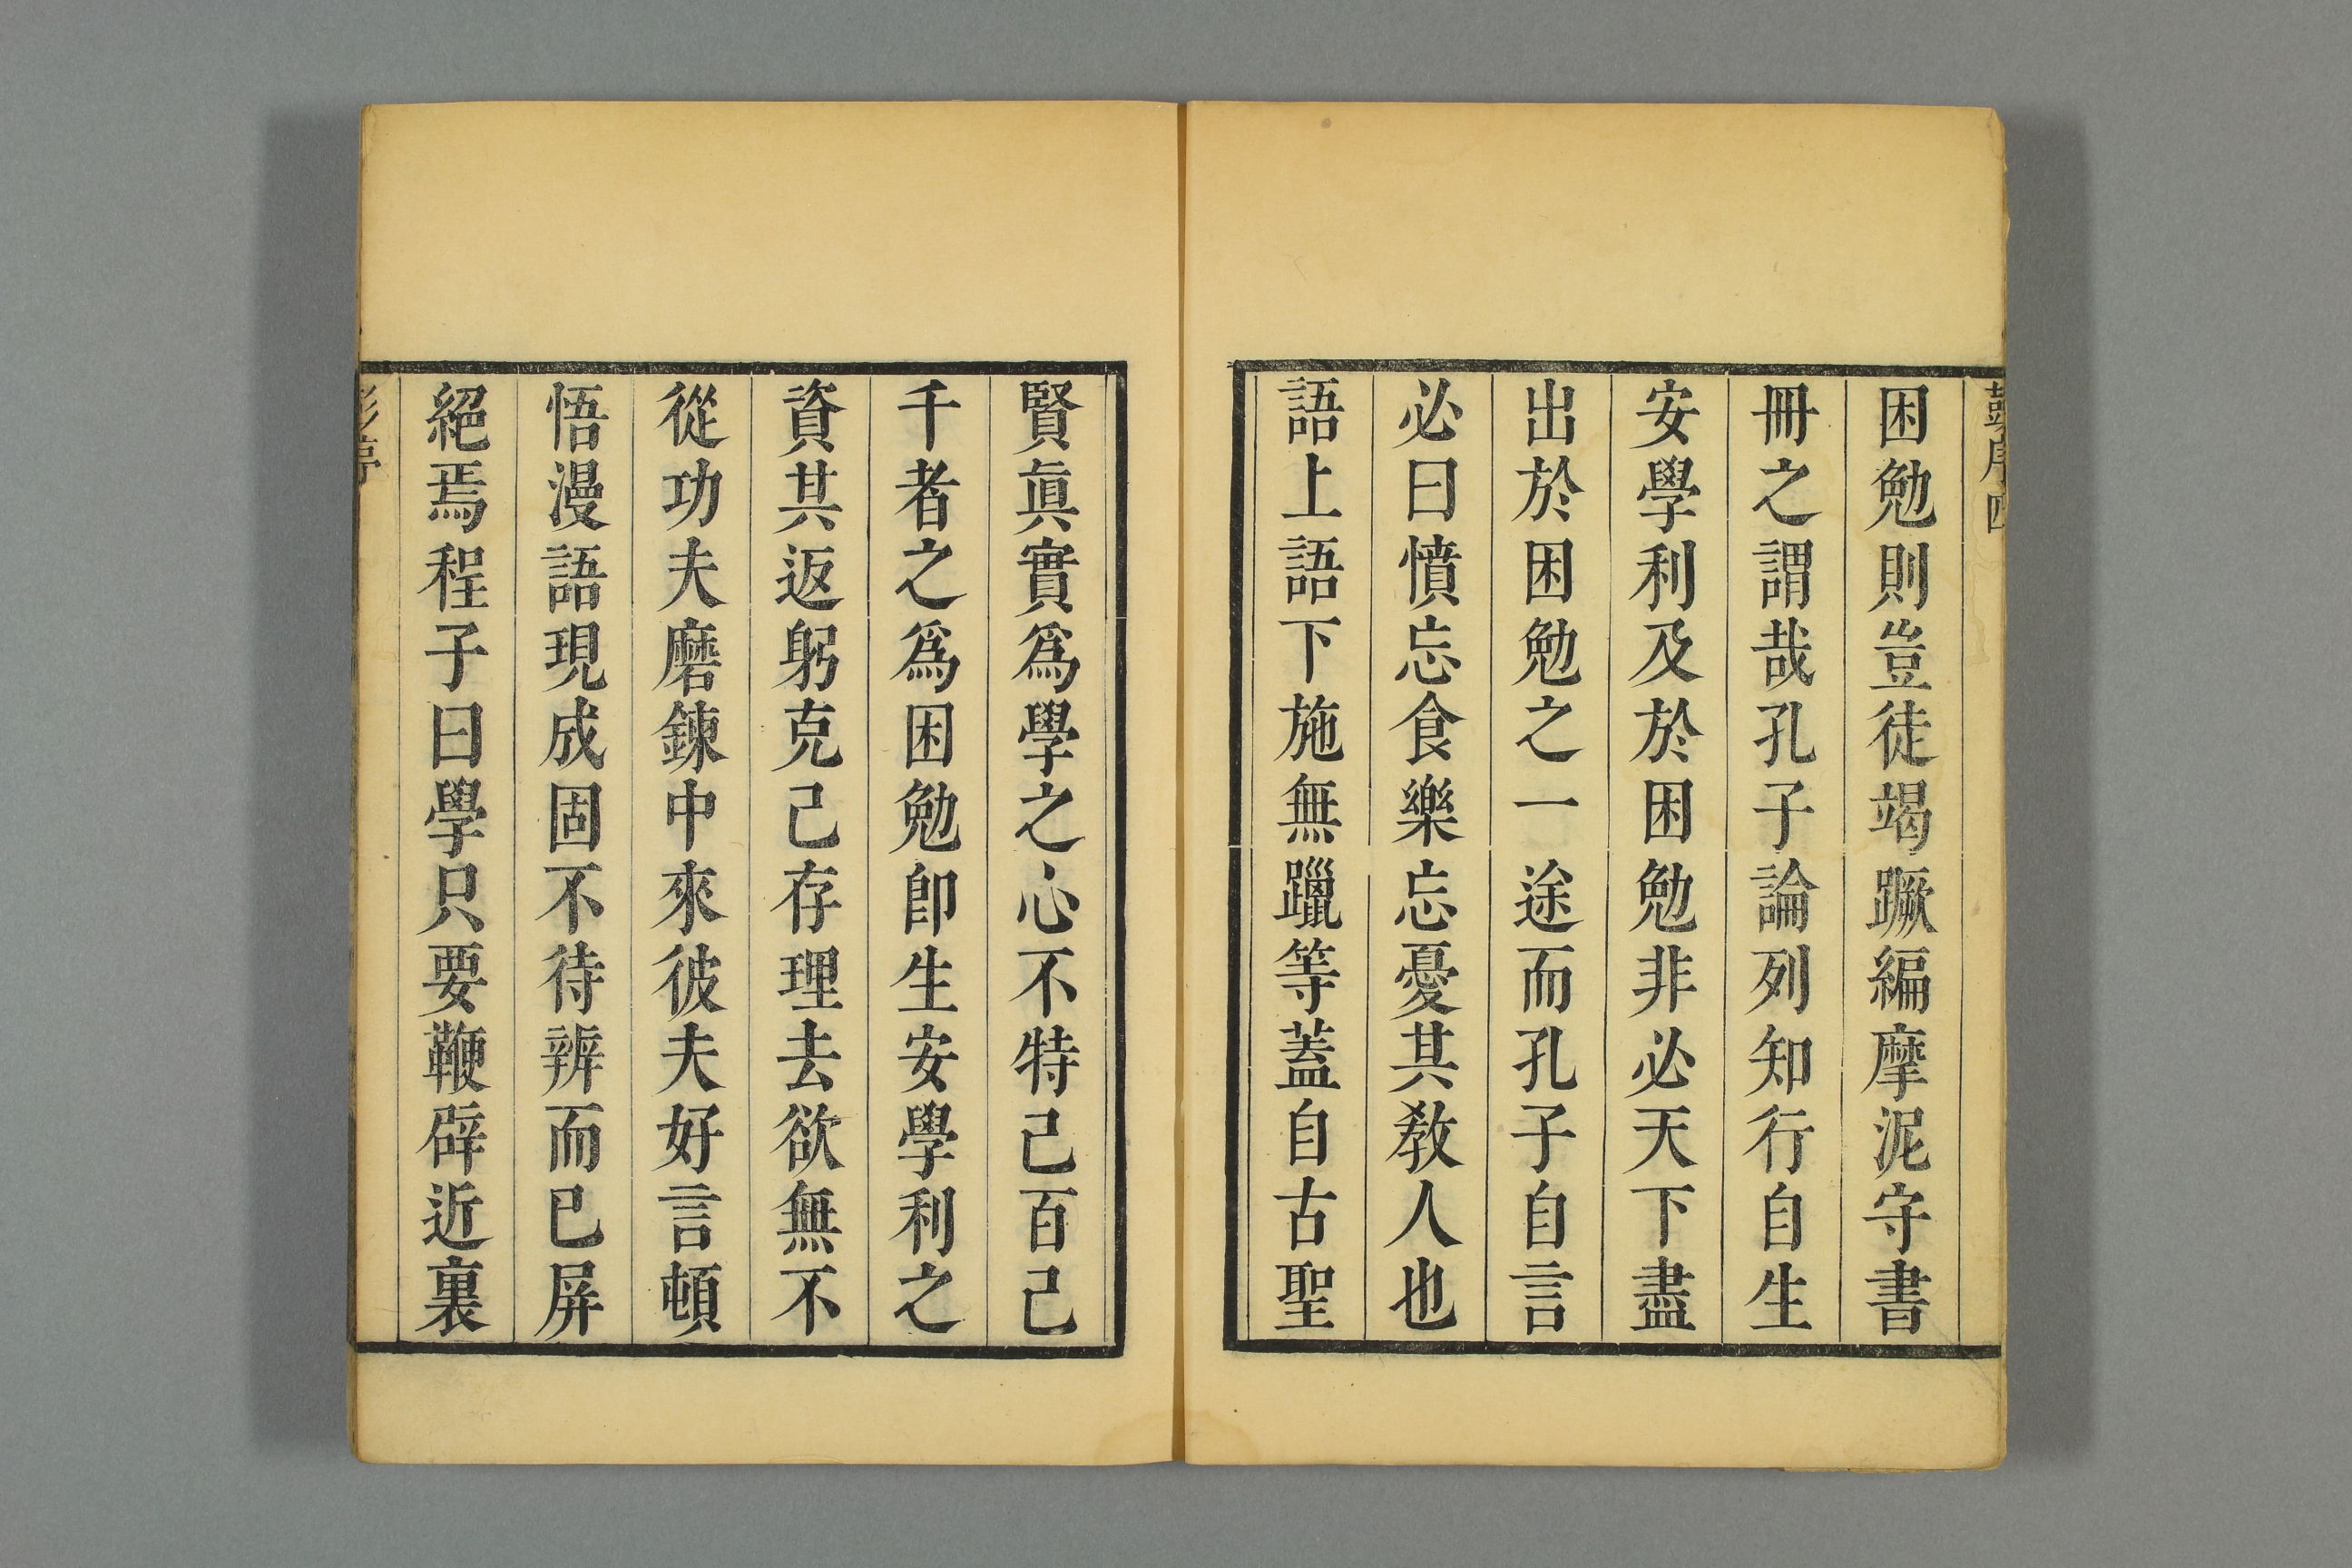 困勉則豈徒竭蹶編摩泥守書
冊之謂哉孔子論列知行自生
安學利及於困勉非必天下盡
出於困勉之一途而孔子自言
必曰憤忘食樂忘憂其敎人也
語上語下施無躐等蓋自古聖
賢眞實爲學之心不特己百己
千者之爲困勉卽生安學利之
資其返躬克己存理去欲無不
從功夫磨鍊中來彼夫好言頓
悟漫語現成固不待辨而已屏
絕焉程子曰學只要鞭辟近裏